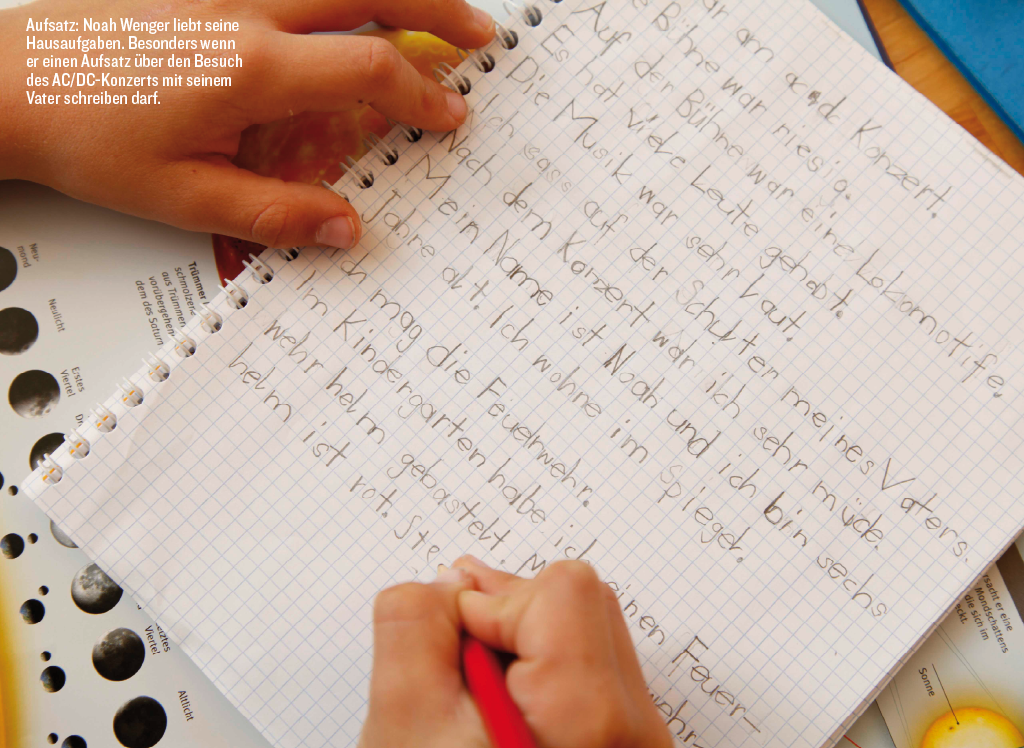 Aufsatz: Noah Wenger liebt seine
Hausaufgaben. Besonders wenn
er einen Aufsatz über den Besuch
des AC/DC-Konzerts mit seinem
Vater schreiben darf.
am acdc Konzert.
Bühne war riesig.
Auf der Bühne war eine Lokomotife.
Es hat viele Leute gehabt.
Die Musik war sehr laut.
Ich sass auf der Schulten meines Vaters.
Nach dem Konzert war ich sehr müde.
Mein Name ist Noah und ich bin sechs
Jahre alt. Ich wohne im Spiegel.
Ich mag die Feuerwehr.
Im Kindergarten habe ich einen Feuer-
wehr helm gebastelt. wehr-
helm ist rot. Ste
Neu-
mond
Neulicht
Erstes
Viertel
Trümmer
schmolzene
aus Trümmern
vorübergehen
dem des Saturn
Viertel
Altlicht
ersacht er eine
Mondschattens
die sich im
Sonne